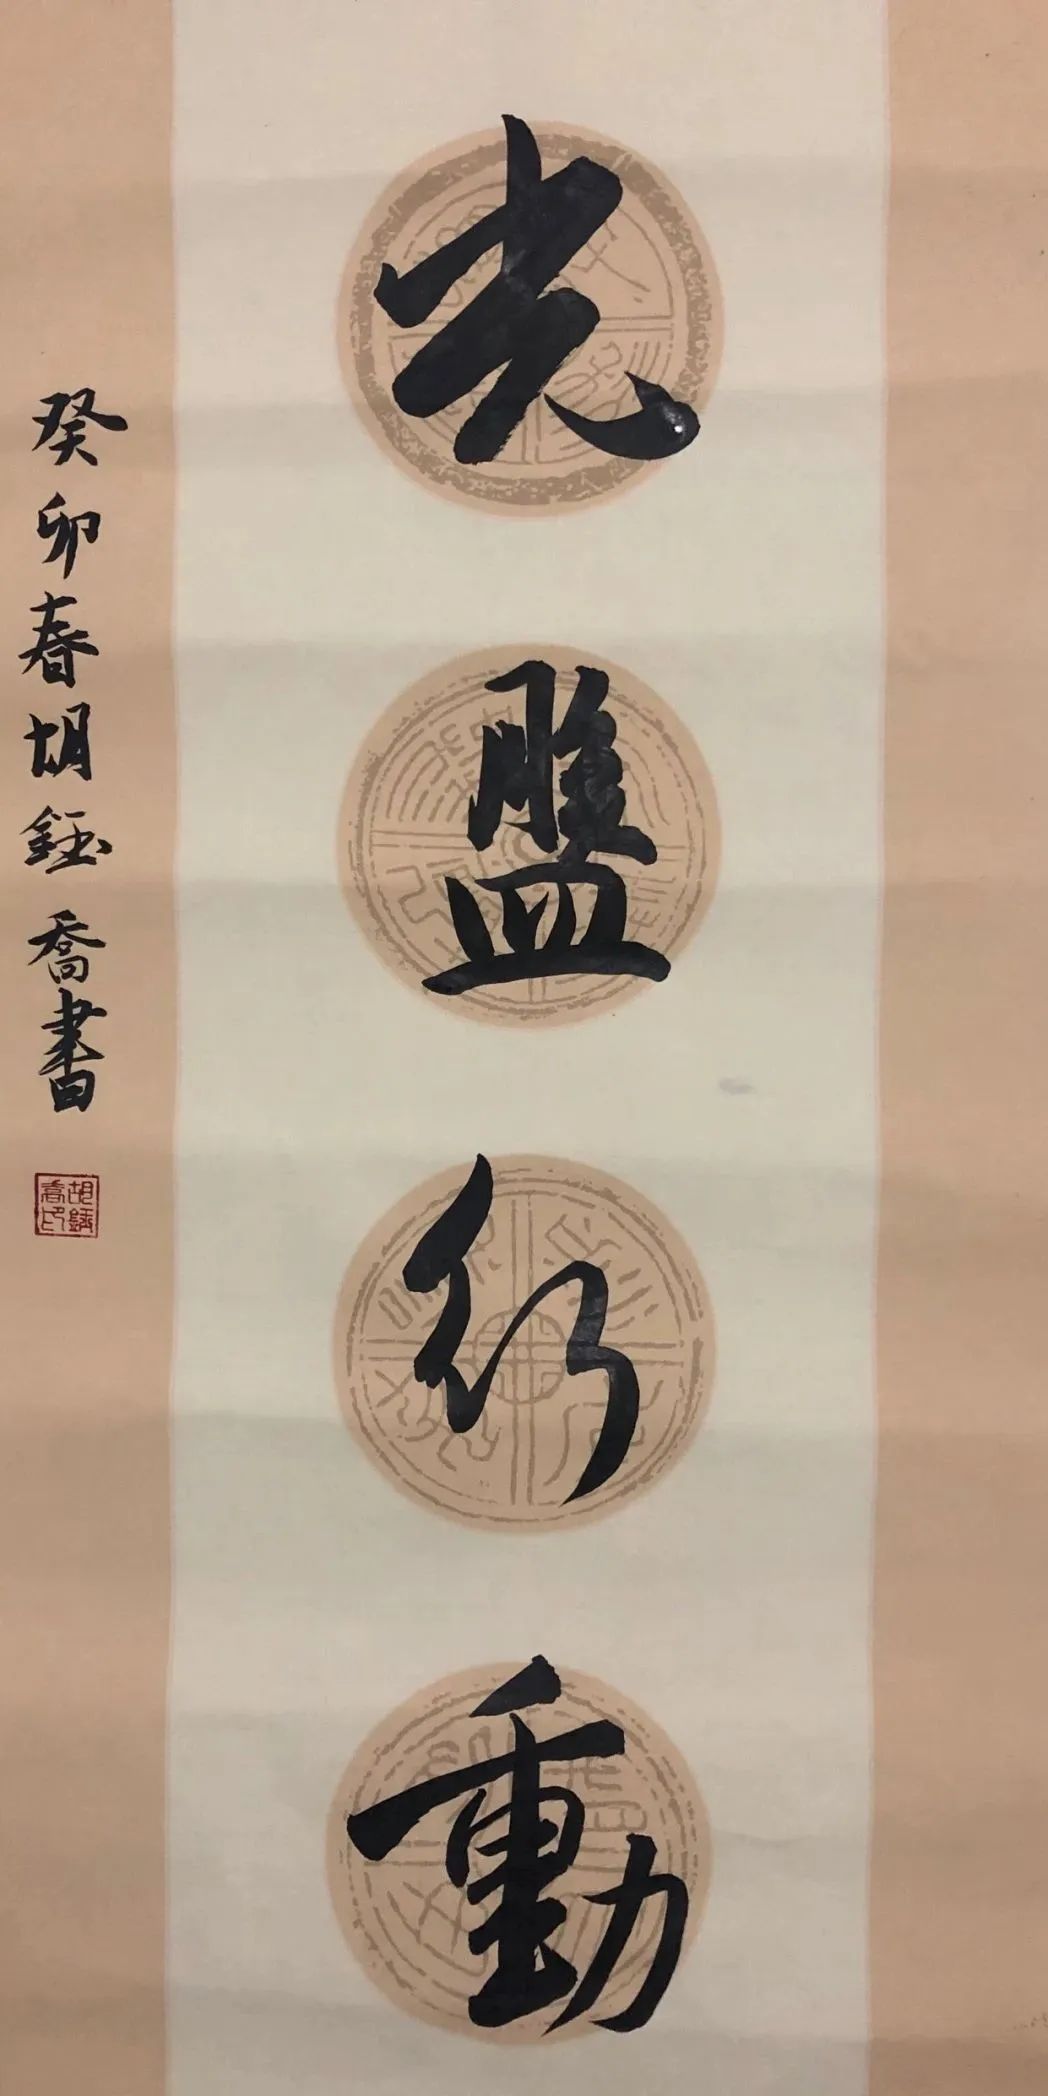 光盤行動
癸卯春胡鈺喬書
胡鈺喬印